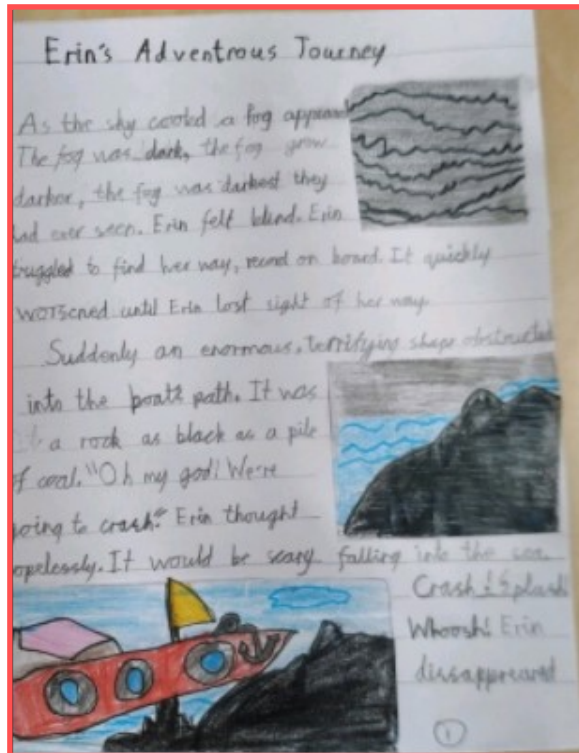 Erin's Adventrous Journey
As the sky cooled a fog appeared
The fog was dark, the fog grow
darkor, the fog was darkest they
had ever seen. Erin felt blind. Erin
truggled to find her way, on board. It quickly
worsened until Erin lost sight of her way.
Suddenly an enormous, terrifying shape obstructed
into the boats path. It was
a rock as black as a pile
of coal. "Oh my god! We're
going to crash." Erin thought
opelessly. It would be scary falling into the sea.
Crash! Splash!
Whoosh! Erin
dissappeared
1